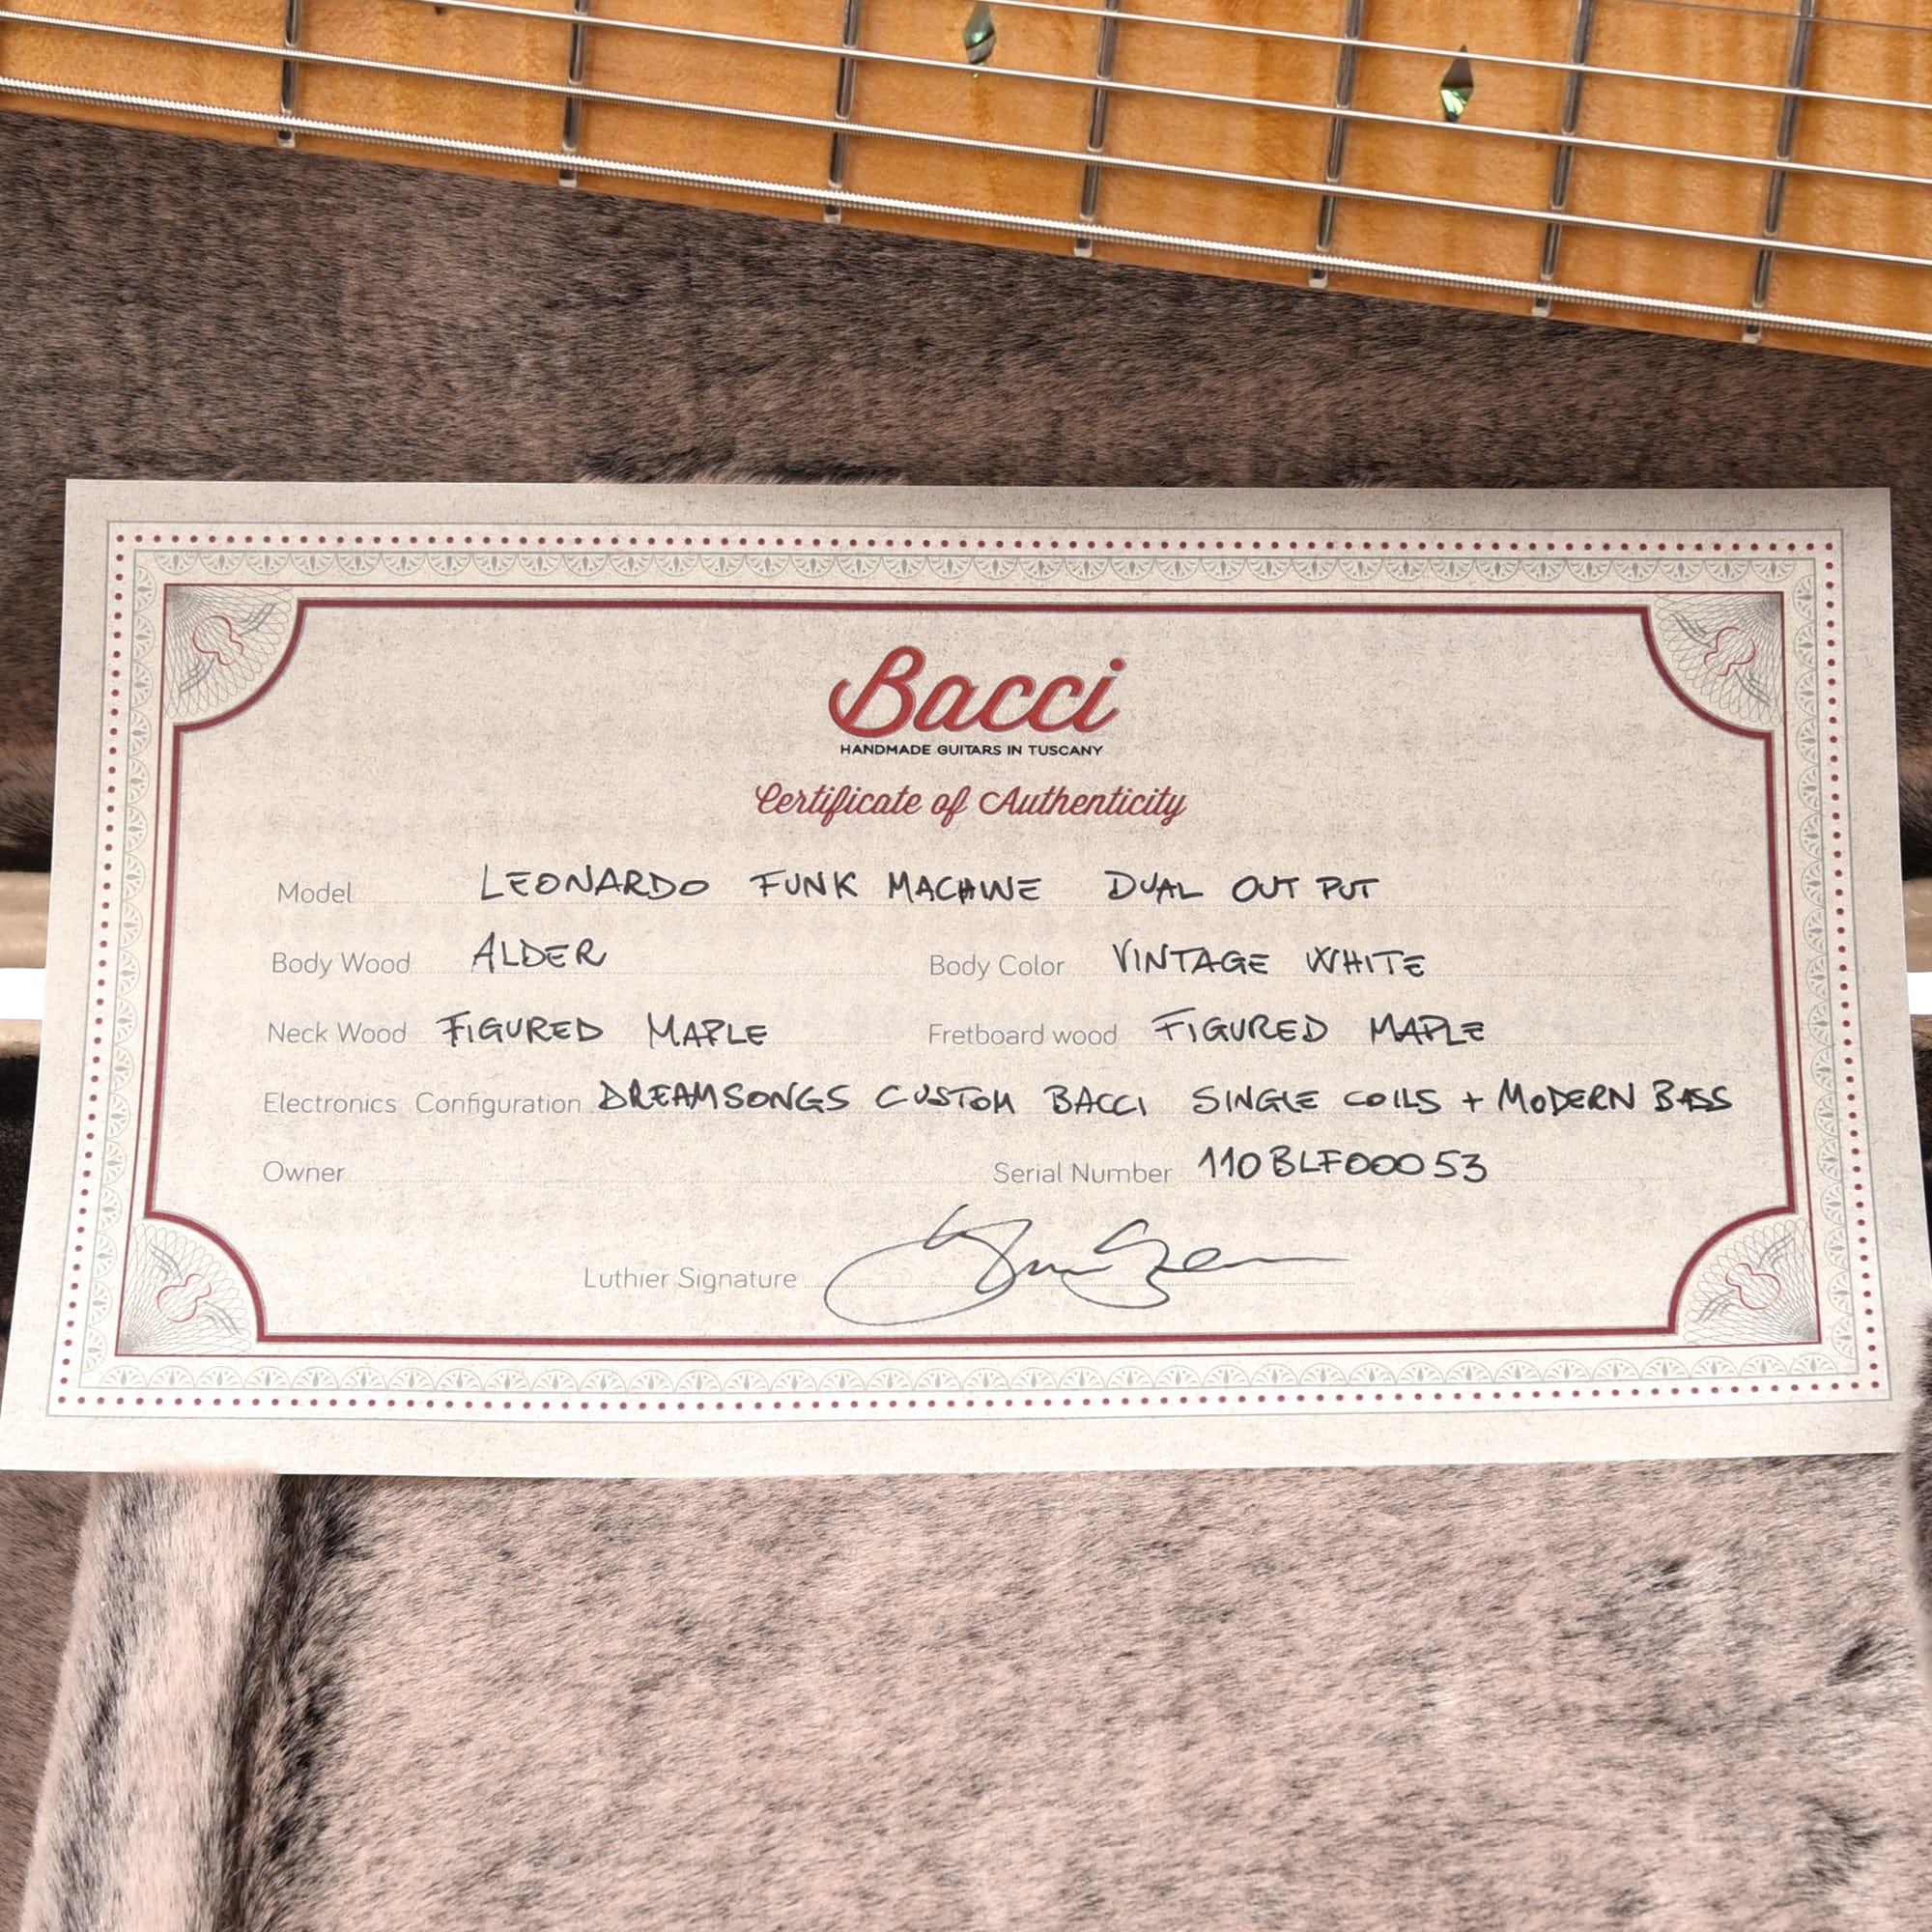 Bacci
HANDMADE GUITARS IN TUSCANY
Certificate of Authenticity
Model LEONARDO FUNK MACHINE DUAL OUT PUT
Body Wood ALDER Body Color VINTAGE WHITE
Neck Wood FIGURED MAPLE Fretboard wood FIGURED MAPLE
Electronics Configuration DREAMSONGS CUSTOM BACCI SINGLE COILS + MODERN BASS
Owner Serial Number 110BLF00053
Luthier Signature